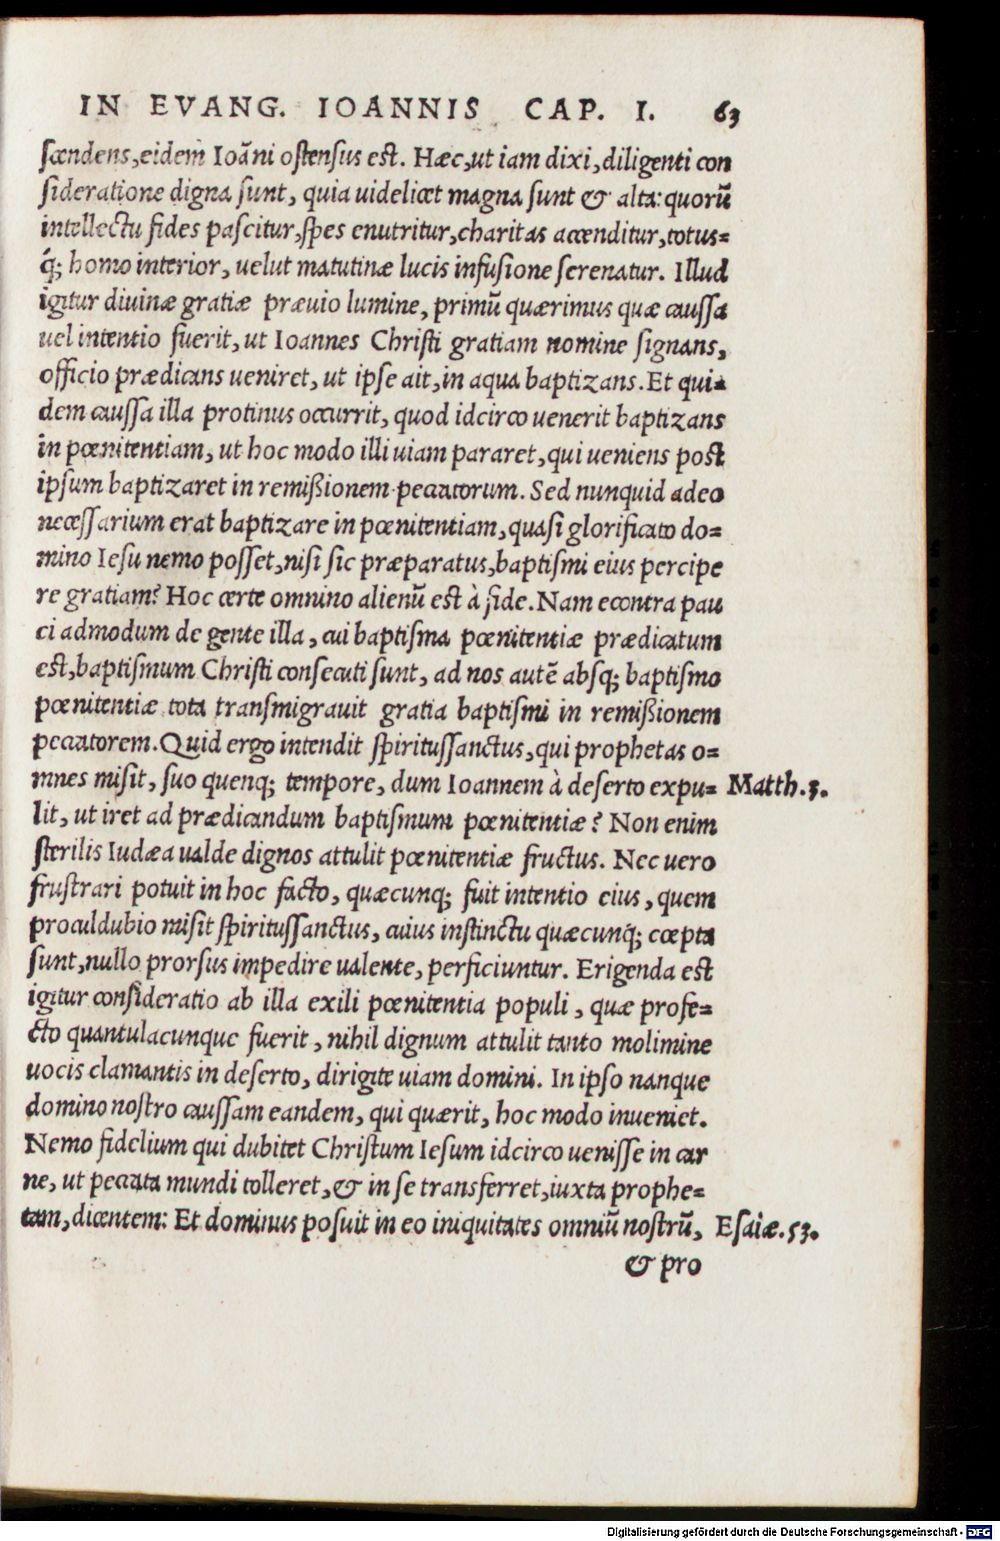 IN EVANG. IOANNIS CAP. I. 63
scendens, eidem Ioãni ostensus est. Hæc, ut iam dixi, diligenti con
sideratione digna sunt, quia uidelicet magna sunt & alta: quorũ
intellectu fides pascitur, spes enutritur, charitas accenditur, totus=
q́; homo interior, uelut matutinæ lucis infusione serenatur. Illud
igitur diuinæ gratiæ præuio lumine, primũ quærimus quæ caussa
uel intentio fuerit, ut Ioannes Christi gratiam nomine signans,
officio prædicans ueniret, ut ipse ait, in aqua baptizans. Et qui=
dem caussa illa protinus occurrit, quod idcirco uenerit baptizans
in pœnitentiam, ut hoc modo illi uiam pararet, qui ueniens post
ipsum baptizaret in remißionem peccatorum. Sed nunquid adeo
necessarium erat baptizare in pœnitentiam, quasi glorificato do=
mino Iesu nemo posset, nisi sic præparatus, baptismi eius percipe
re gratiam? Hoc certe omnino alienũ est à fide. Nam econtra pau
ci admodum de gente illa, cui baptisma pœnitentiæ prædicatum
est, baptismum Christi consecuti sunt, ad nos autẽ absq; baptismo
pœnitentiæ tota transmigrauit gratia baptismi in remißionem
peccatorem. Quid ergo intendit spiritussanctus, qui prophetas o=
mnes misit, suo quenq; tempore, dum Ioannem à deserto expu= Matth. 3.
lit, ut iret ad prædicandum baptismum pœnitentiæ? Non enim
sterilis Iudæa ualde dignos attulit pœnitentiæ fructus. Nec uero
frustrari potuit in hoc facto, quæcunq; fuit intentio eius, quem
proculdubio misit spiritussanctus, cuius instinctu quæcunq́; cœpta
sunt, nullo prorsus impedire ualente, perficiuntur. Erigenda est
igitur consideratio ab illa exili pœnitentia populi, quæ profe=
cto quantulacunque fuerit, nihil dignum attulit tanto molimine
uocis clamantis in deserto, dirigite uiam domini. In ipso nanque
domino nostro caussam eandem, qui quærit, hoc modo inueniet.
Nemo fidelium qui dubitet Christum Iesum idcirco uenisse in car
ne, ut peccata mundi tolleret, & in se transferret, iuxta prophe=
tam, dicentem: Et dominus posuit in eo iniquitates omniũ nostrũ, Esaiæ. 53.
& pro
Digitalisierung gefördert durch die Deutsche Forschungsgemeinschaft - DFG